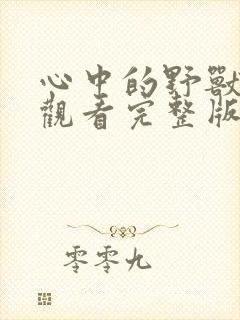 心中的野獸
觀看完整版
零零九